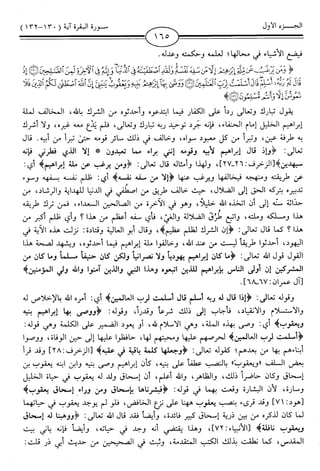 الجـــزء الأول
سورة البقرة آية (١٣٠-١٣٢)
١٦٥
فيضع الأشياء في محالها؛ لعلمه وحكمته وعدله.
﴿ وَمَن يَرْغَبُ عَن مِّلَّةِ إِبْرَاهِيمَ إِلَّا مَن سَفِهَ نَفْسَهُ وَلَقَدِ اصْطَفَيْنَاهُ فِي الدُّنْيَا وَإِنَّهُ فِي الْآخِرَةِ لَمِنَ الصَّالِحِينَ ۝ إِذْ
قَالَ لَهُ رَبُّهُ أَسْلِمْ قَالَ أَسْلَمْتُ لِرَبِّ الْعَالَمِينَ ۝ وَوَصَّى بِهَا إِبْرَاهِيمُ بَنِيهِ وَيَعْقُوبُ يَا بَنِيَّ إِنَّ اللَّهَ اصْطَفَى لَكُمُ الدِّينَ فَلَا
تَمُوتُنَّ إِلَّا وَأَنتُم مُّسْلِمُونَ ۝ ﴾
يقول تبارك وتعالى رداً على الكفار فيما ابتدعوه وأحدثوه من الشرك بالله، المخالف لملة
إبراهيم الخليل إمام الحنفاء، فإنه جرد توحيد ربه تبارك وتعالى، فلم يَدْعُ معه غيره، ولا أشرك
به طرفة عين، وتبرأ من كل معبود سواه، وخالف في ذلك سائر قومه حتى تبرأ من أبيه. قال
تعالى: ﴿وإذ قال إبراهيم لأبيه وقومه إنني براء مما تعبدون ۝ إلا الذي فطرني فإنه
سيهدين﴾[الزخرف:٢٦-٢٧]، ولهذا وأمثاله قال تعالى: ﴿ومن يرغب عن ملة إبراهيم﴾ أي:
عن طريقته ومنهجه فيخالفها ويرغب عنها ﴿إلا من سفه نفسه﴾ أي: ظلم نفسه بسفهه وسوء
تدبيره بتركه الحق إلى الضلال، حيث خالف طريق من اصطُفي في الدنيا للهداية والرشاد، من
حداثة سنّه إلى أن اتخذه الله خليلاً، وهو في الآخرة من الصالحين السعداء، فمن ترك طريقه
هذا ومسلكه وملته، واتبع طُرُقَ الضلالة والغيّ، فأي سفه أعظم من هذا؟ وأي ظلم أكبر من
هذا؟ كما قال تعالى: ﴿إن الشرك لظلم عظيم﴾، وقال أبو العالية وقتادة: نزلت هذه الآية في
اليهود، أحدثوا طريقاً ليست من عند الله، وخالفوا ملة إبراهيم فيما أحدثوه، ويشهد لصحة هذا
القول قول الله تعالى: ﴿ما كان إبراهيم يهودياً ولا نصرانياً ولكن كان حنيفاً مسلماً وما كان من
المشركين إن أولى الناس بإبراهيم للذين اتبعوه وهذا النبي والذين آمنوا والله ولي المؤمنين﴾
[آل عمران:٦٧،٦٨].
وقوله تعالى: ﴿إذا قال له ربه أسلم قال أسلمت لرب العالمين﴾ أي: أمره الله بالإخلاص له
والاستسلام والانقياد، فأجاب إلى ذلك شرعاً وقدراً، وقوله: ﴿ووصى بها إبراهيم بنيه
ويعقوب﴾ أي: وصى بهذه الملة، وهي الإسلام لله، أو يعود الضمير على الكلمة وهي قوله:
﴿أسلمت لرب العالمين﴾ لحرصهم عليها ومحبتهم لها، حافظوا عليها إلى حين الوفاة، ووصوا
أبناءهم بها من بعدهم؛ كقوله تعالى: ﴿وجعلها كلمة باقية في عقبه﴾[الزخرف:٢٨] وقد قرأ
بعض السلف «ويعقوب» بالنصب عطفاً على بنيه، كأن إبراهيم وصى بنيه وابن ابنه يعقوب بن
إسحاق وكان حاضراً ذلك، والظاهر، والله أعلم، أن إسحاق ولد له يعقوب في حياة الخليل
وسارة، لأن البشارة وقعت بهما في قوله: ﴿فبشرناها بإسحاق ومن وراء إسحاق يعقوب﴾
[هود:٧١] وقد قرىء بنصب يعقوب ههنا على نزع الخافض، فلو لم يوجد يعقوب في حياتهما
لما كان لذكره من بين ذرية إسحاق كبير فائدة، وأيضاً فقد قال الله تعالى: ﴿ووهبنا له إسحاق
ويعقوب نافلة﴾[الأنبياء:٧٢]، وهذا يقتضي أنه وجد في حياته، وأيضاً فإنه باني بيت
المقدس، كما نطقت بذلك الكتب المتقدمة، وثبت في الصحيحين من حديث أبي ذر قلت: